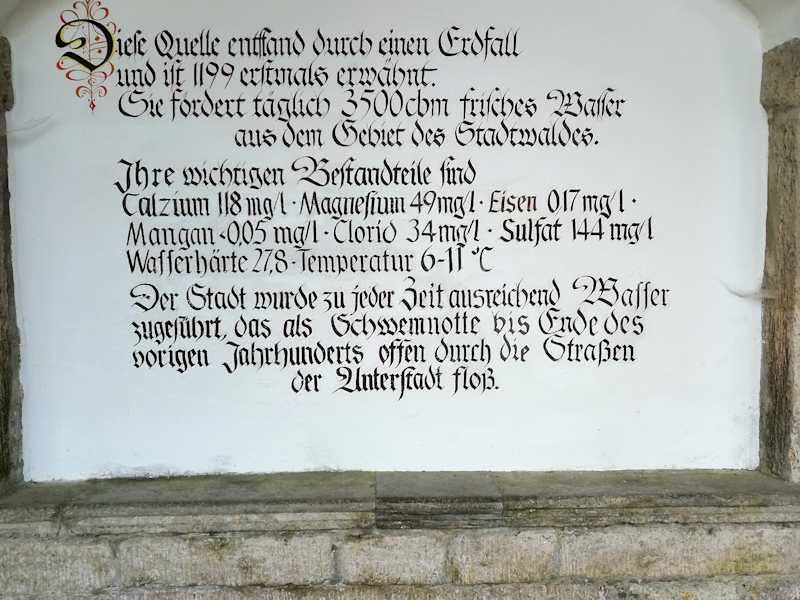 Diese Quelle entstand durch einen Erdfall
und ist 1199 erstmals erwähnt.
Sie fördert täglich 3500cbm frisches Wasser
aus dem Gebiet des Stadtwaldes.
Ihre wichtigen Bestandteile sind
Calzium 118 mg/l · Magnesium 49mg/l · Eisen 0,17mg/l ·
Mangan <0,05 mg/l · Clorid 34mg/l · Sulfat 144 mg/l
Wasserhärte 27,8 · Temperatur 6-11 °C
Der Stadt wurde zu jeder Zeit ausreichend Wasser
zugeführt, das als Schwemnotte bis Ende des
vorigen Jahrhunderts offen durch die Straßen
der Unterstadt floß.